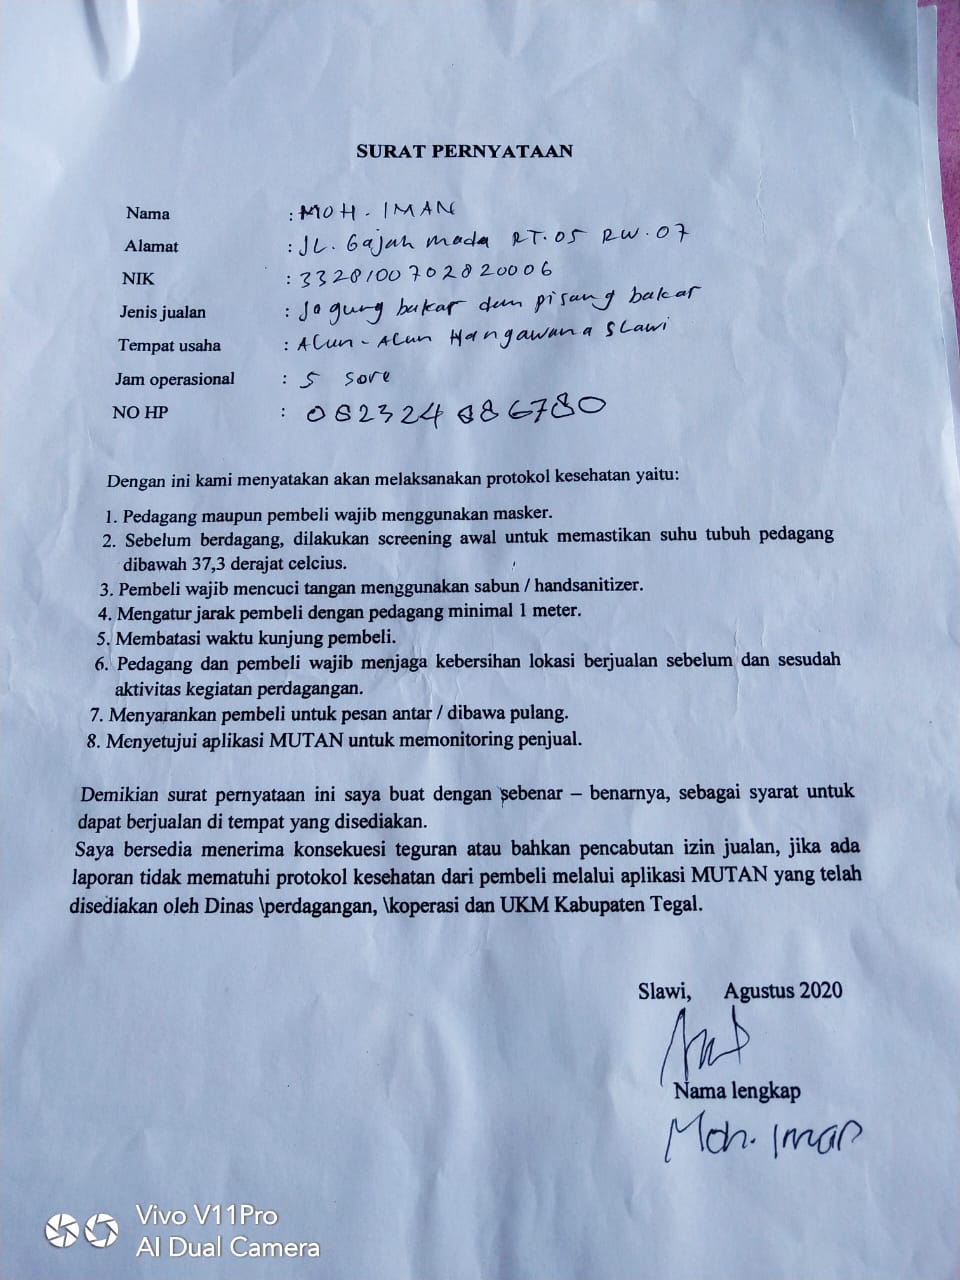 SURAT PERNYATAAN
Nama : MOH. IMAN
Alamat : JL. Gajah mada RT.05 RW.07
NIK : 3328100702820006
Jenis jualan : Jagung bakar dan pisang bakar
Tempat usaha : Alun-Alun Hangawana Slawi
Jam operasional : 5 sore
NO HP :
Dengan ini kami menyatakan akan melaksanakan protokol kesehatan yaitu:
1. Pedagang maupun pembeli wajib menggunakan masker.
2. Sebelum berdagang, dilakukan screening awal untuk memastikan suhu tubuh pedagang
dibawah 37,3 derajat celcius.
3. Pembeli wajib mencuci tangan menggunakan sabun / handsanitizer.
4. Mengatur jarak pembeli dengan pedagang minimal 1 meter.
5. Membatasi waktu kunjung pembeli.
6. Pedagang dan pembeli wajib menjaga kebersihan lokasi berjualan sebelum dan sesudah
aktivitas kegiatan perdagangan.
7. Menyarankan pembeli untuk pesan antar / dibawa pulang.
8. Menyetujui aplikasi MUTAN untuk memonitoring penjual.
Demikian surat pernyataan ini saya buat dengan sebenar – benarnya, sebagai syarat untuk
dapat berjualan di tempat yang disediakan.
Saya bersedia menerima konsekuesi teguran atau bahkan pencabutan izin jualan, jika ada
laporan tidak mematuhi protokol kesehatan dari pembeli melalui aplikasi MUTAN yang telah
disediakan oleh Dinas \perdagangan, \koperasi dan UKM Kabupaten Tegal.
Slawi, Agustus 2020
Nama lengkap
Moh. Iman
Vivo V11Pro
AI Dual Camera